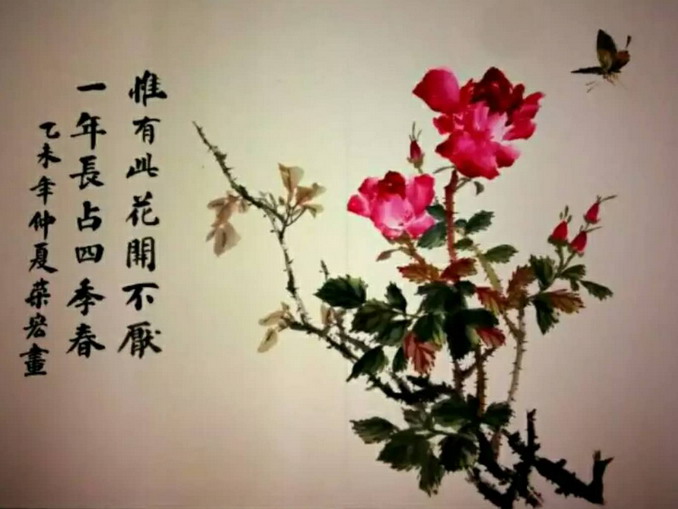 惟有此花開不厭
一年長占四季春
乙未年仲夏荣宏畫